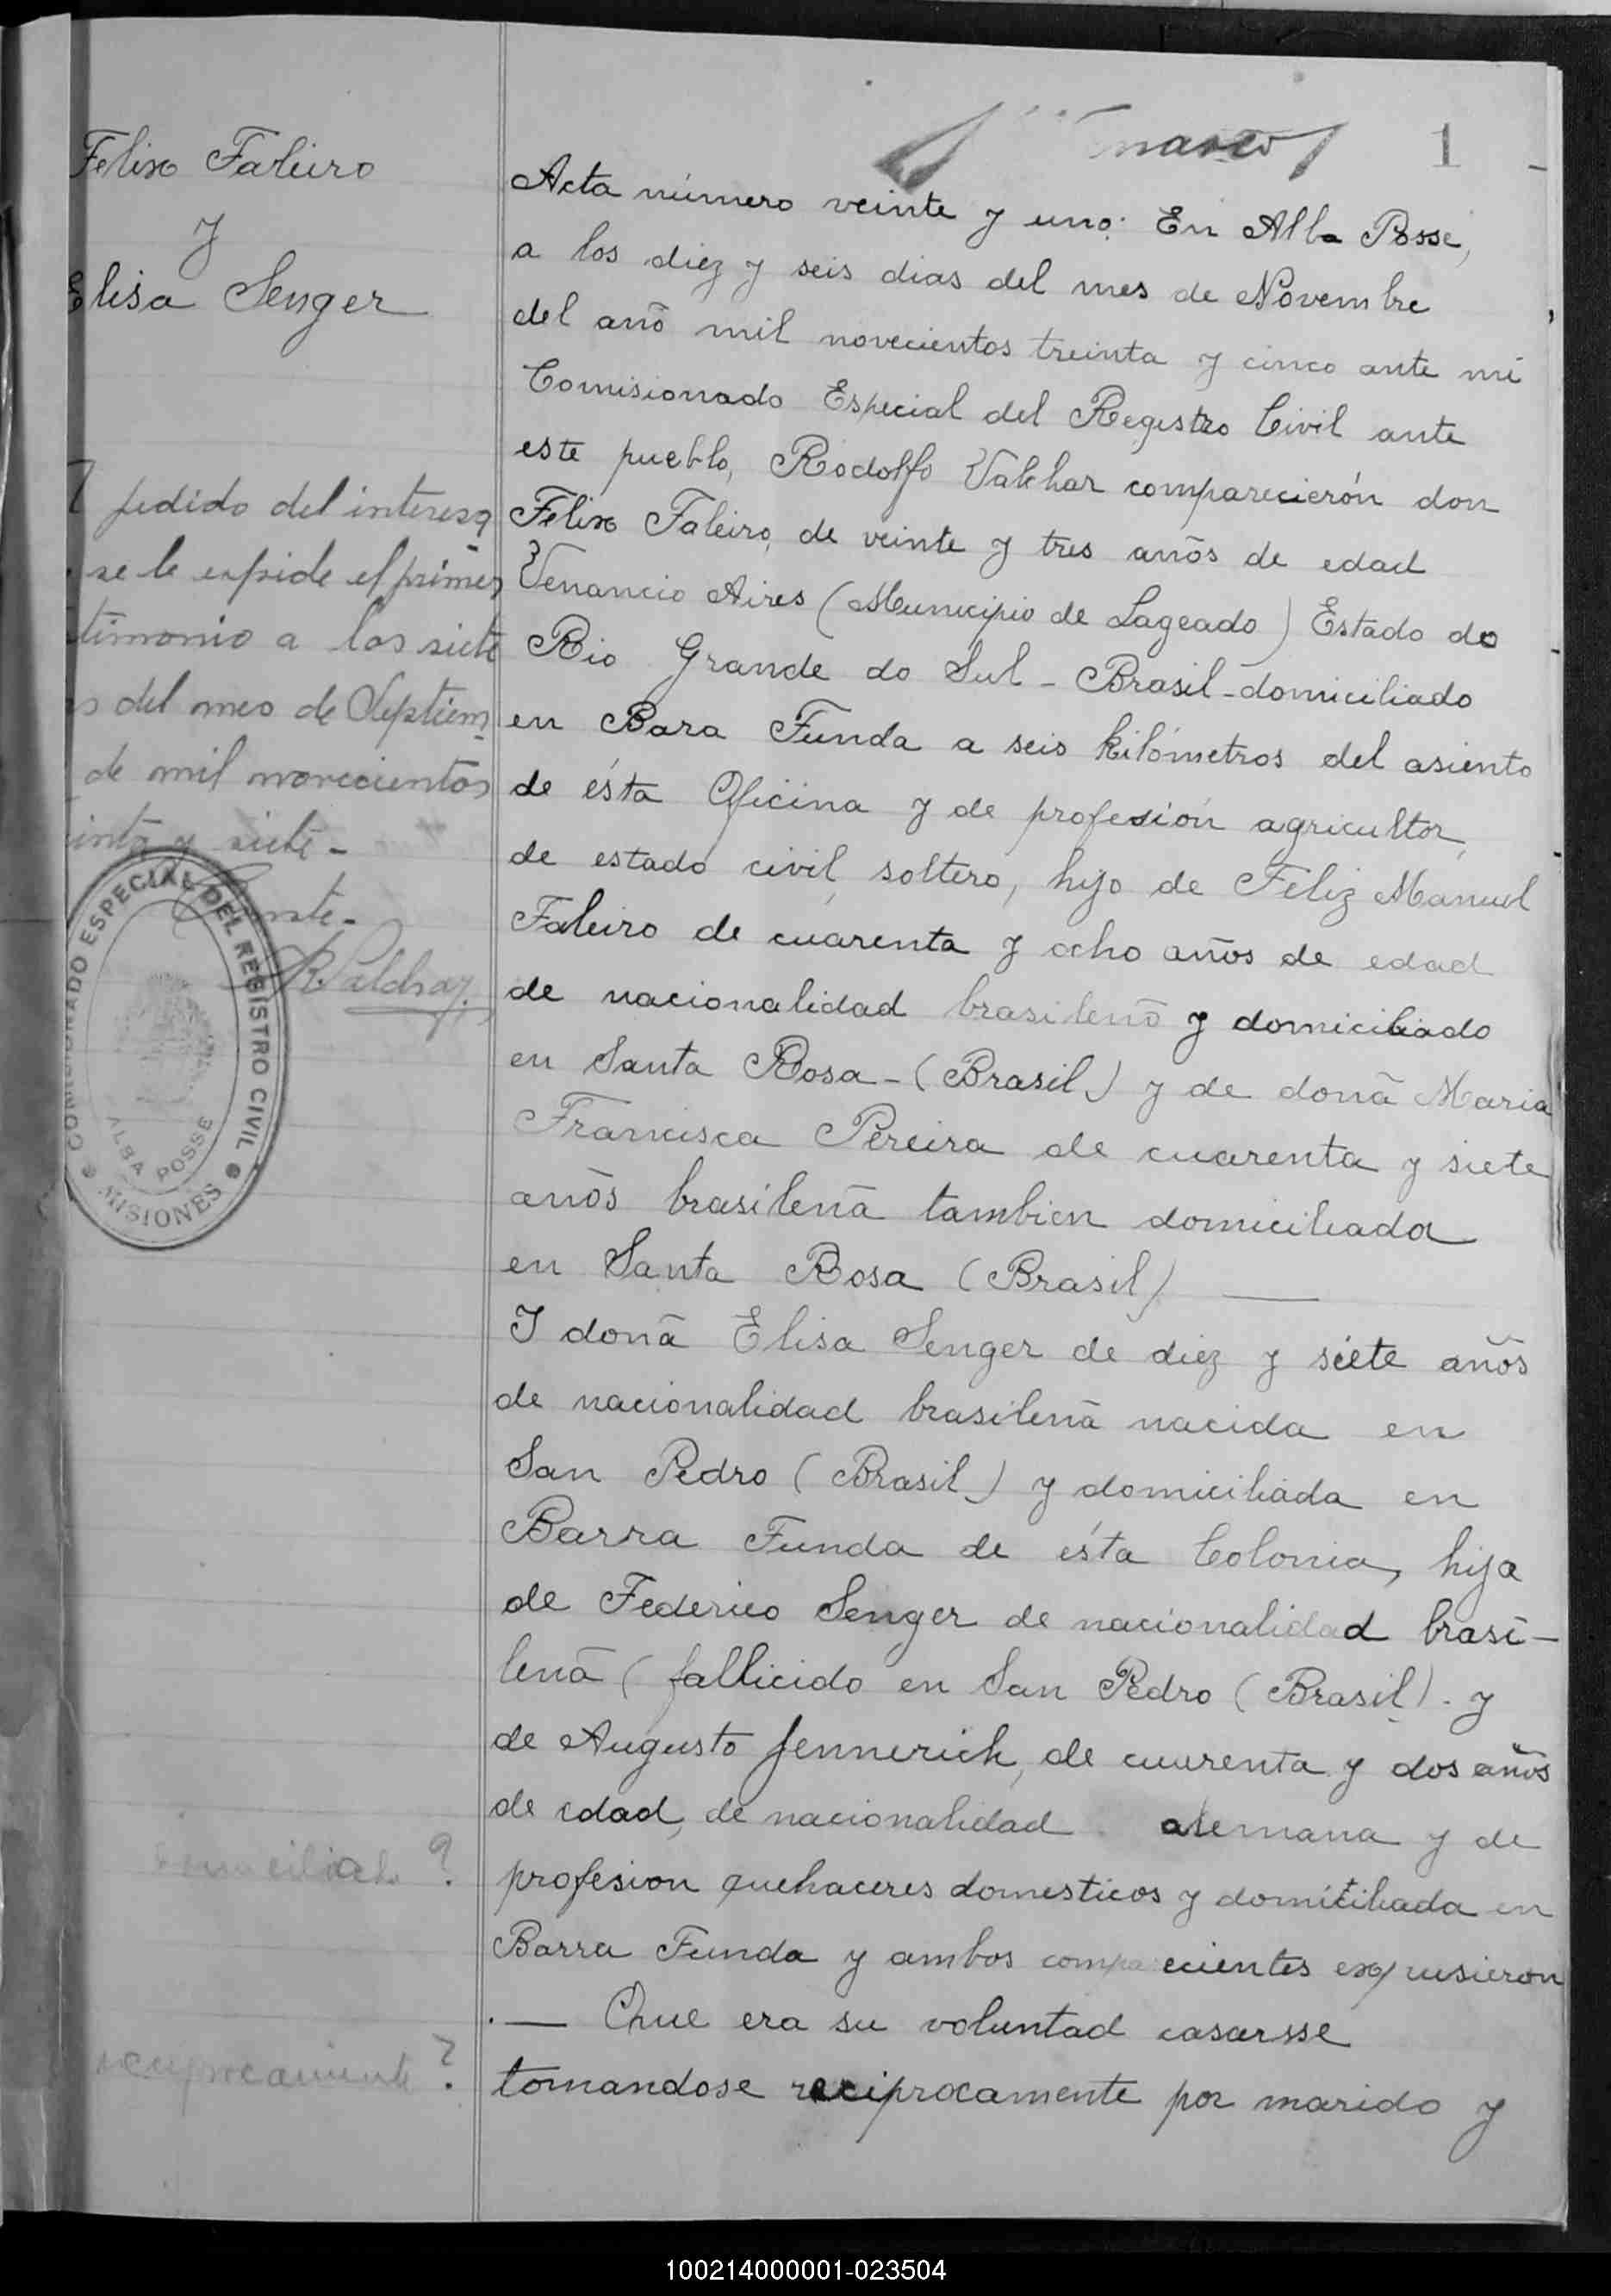 1
Felix Faleiro
y
Elisa Senger
pedido del interesa
se le expide el primer
timonio a los siete
s del mes de Septiem
de mil novecientos
inta y siete -
Conste -
COMISIONADO ESPECIAL DEL REGISTRO CIVIL
ALBA POSSE
MISIONES
Acta número veinte y uno: En Alba Posse,
a los diez y seis dias del mes de Novembre
del anõ mil novecientos treinta y cinco ante mi
Comisionado Especial del Registro Civil ante
este pueblo, Rodolfo Valchar comparecierón don
Felix Faleiro, de veinte y tres anõs de edad
Venancio Aires (Municipio de Lageado) Estado do
Rio Grande do Sul - Brasil - domiciliado
en Bara Funda a seis kilómetros del asiento
de ésta Oficina y de profesión agricultor,
de estado civil soltero, hijo de Feliz Manuel
Faleiro de cuarenta y ocho años de edad
de nacionalidad brasilenõ y domiciliado
en Santa Rosa - (Brasil) y de donã Maria
Francisca Pereira de cuarenta y siete
anõs brasilenã tambien domiciliada
en Santa Rosa (Brasil) —
I donã Elisa Senger de diez y siete años
de nacionalidad brasilenã nacida en
San Pedro (Brasil) y domiciliada en
Barra Funda de ésta Colonia, hija
de Federico Senger de nacionalidad brasi-
lenã (fallicido en San Pedro (Brasil). y
de Augusto Jennerich, de cuarenta y dos años
de edad, de nacionalidad alemana y de
domiciliado ?
profesion quehaceres domesticos y domiciliada en
Barra Funda y ambos comparecientes expusieron
. — Que era su voluntad casarsse
reciprocamente ?
tomandose reciprocamente por marido y
100214000001-023504